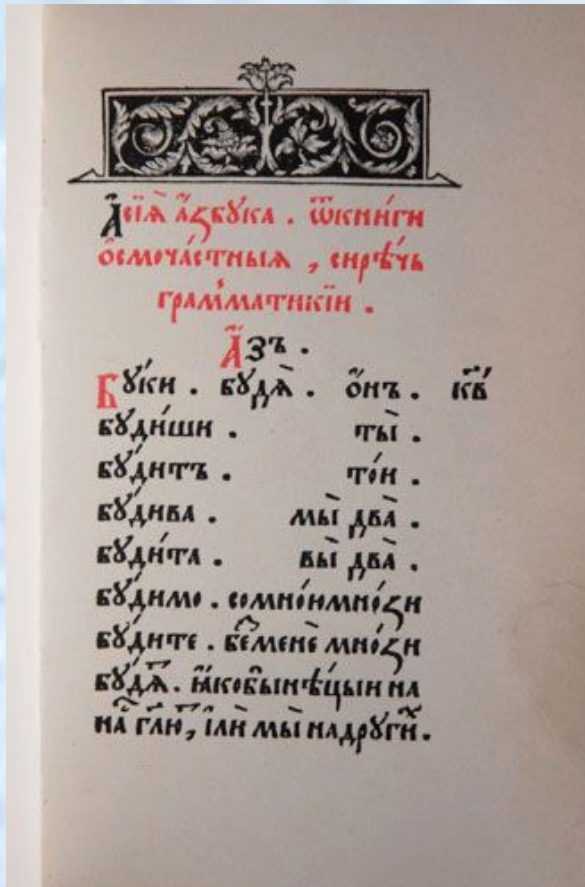 А҆сїѧ̀ а҆́ꙁбꙋка . ѿкни́ги
ѻ҆смоча́стныѧ , сирѣ́чь
грамматикїи .
А҆́зъ .
Бꙋ́ки . бꙋдѧ̀ . ѻ҆́нъ . к҃в
бꙋди́ши . ты̀ .
бꙋ́дитъ . то́и .
бꙋ́дива . мы̀ два̀ .
бꙋди́та . вы̀ два̀ .
бꙋ́димо . сомно́имно́ꙁи
бꙋ́дите . беⷥменѐ мно́ꙁи
на́ гл҃ю , і҆лѝ мы̀ надрꙋги́ⷯ .